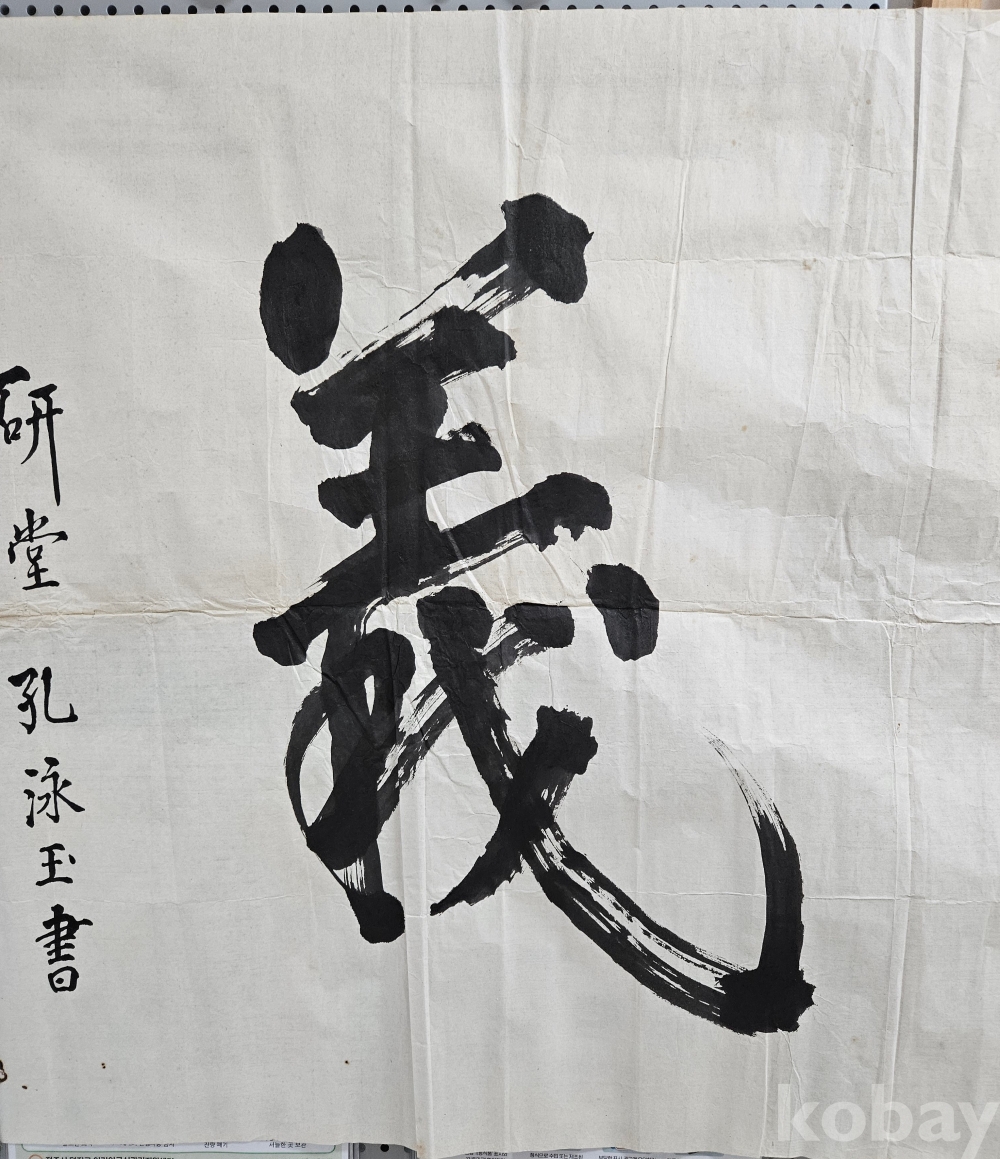 義
研堂 孔泳玉書
kobay